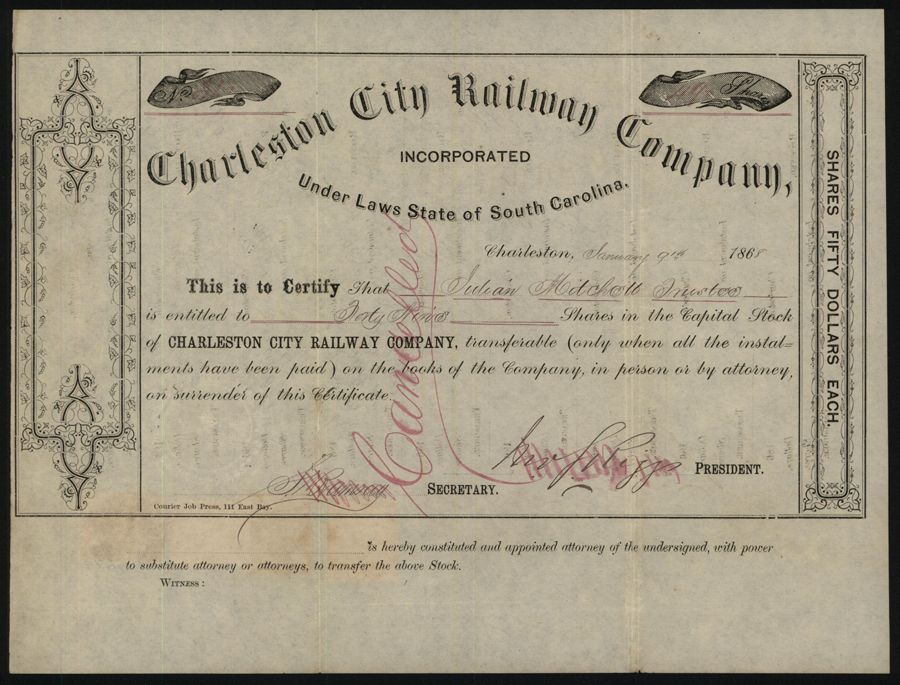 No.
Shares
Charleston City Railway Company,
INCORPORATED
Under Laws State of South Carolina.
Charleston, January 9th 1868
This is to Certify That Julian Mitchell Trustee
is entitled to Forty Nine Shares in the Capital Stock
of CHARLESTON CITY RAILWAY COMPANY, transferable (only when all the instal=
ments have been paid) on the books of the Company, in person or by attorney,
on surrender of this Certificate.
Cancelled
SECRETARY.
PRESIDENT.
Courier Job Press, 111 East Bay.
SHARES FIFTY DOLLARS EACH.
is hereby constituted and appointed attorney of the undersigned, with power
to substitute attorney or attorneys, to transfer the above Stock.
WITNESS: